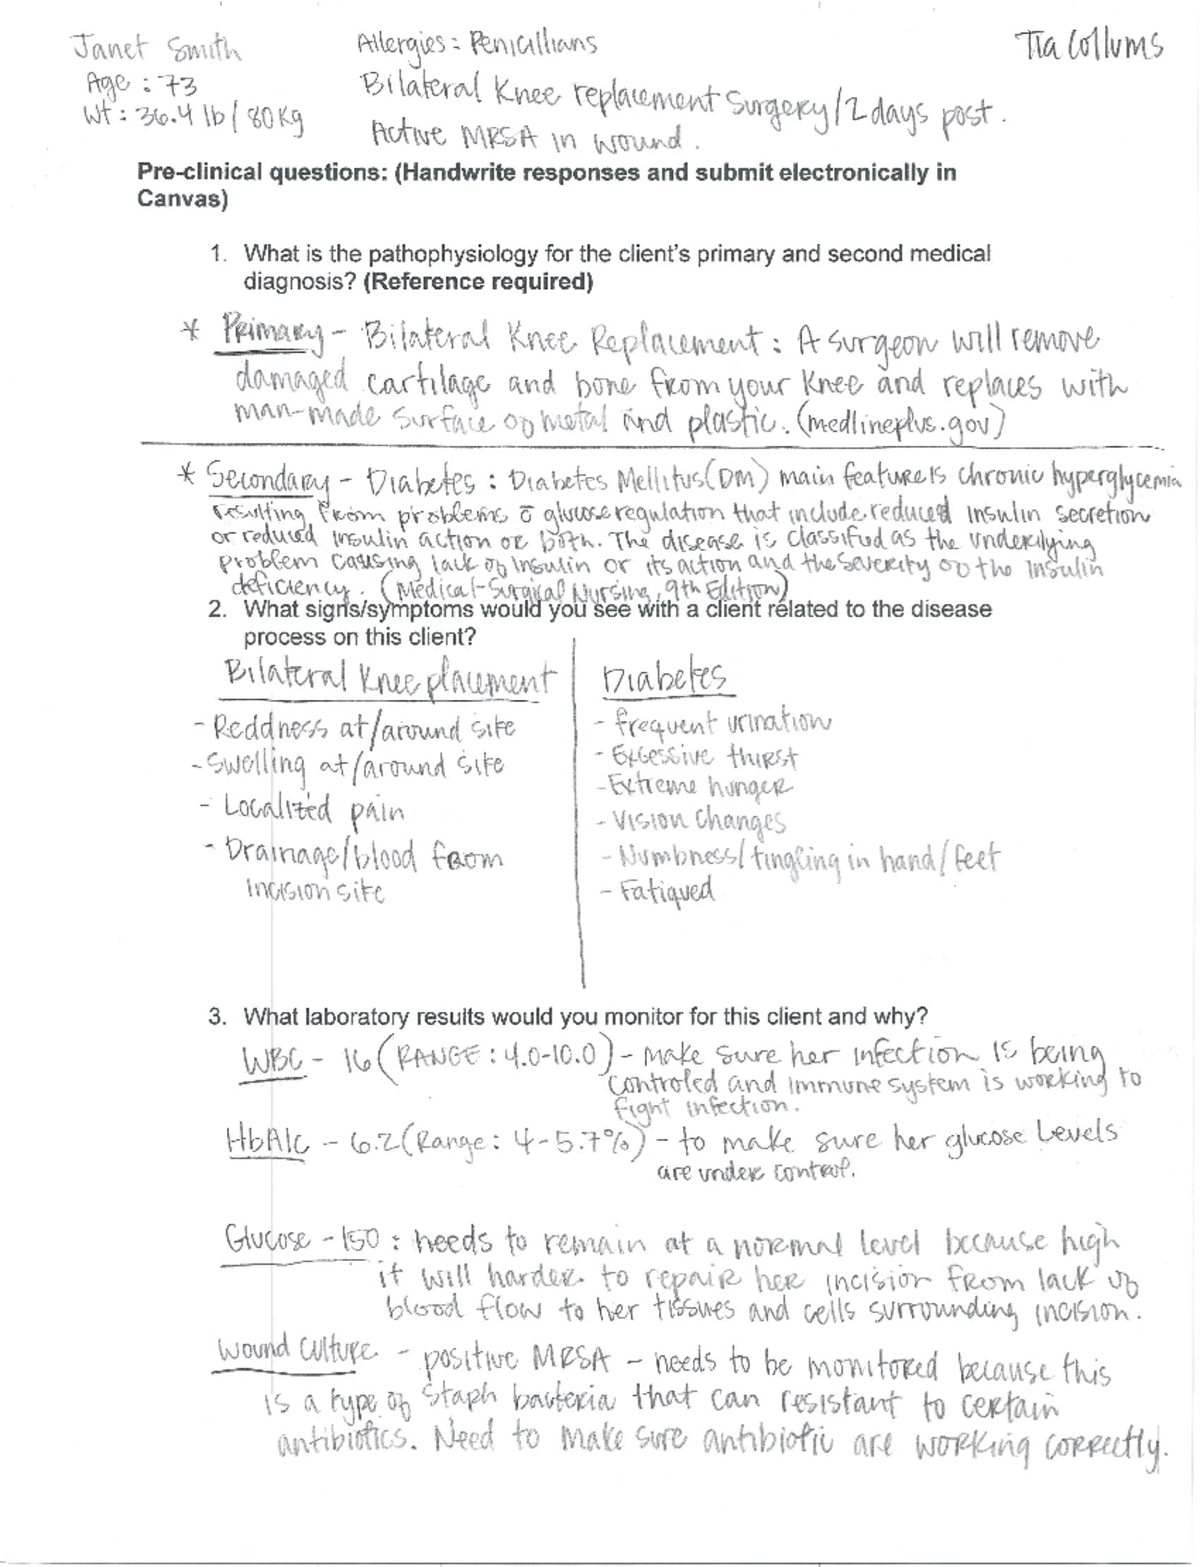 Janet Smith
Age : 73
Wt : 36.4 lb / 80 Kg
Allergies : Penicillians
Bilateral Knee replacement Surgery/2 days post.
Active MRSA in wound.
Tia Collums
Pre-clinical questions: (Handwrite responses and submit electronically in
Canvas)
1. What is the pathophysiology for the client's primary and second medical
diagnosis? (Reference required)
* Primary - Bilateral Knee Replacement : A surgeon will remove
damaged cartilage and bone from your Knee and replaces with
man-made surface of metal and plastic. (medlineplus.gov)
* Secondary - Diabetes : Diabetes Mellitus (DM) main feature is chronic hyperglycemia
resulting from problems c̄ glucose regulation that include reduced insulin secretion
or reduced insulin action or both. The disease is classified as the underlying
problem causing lack of insulin or its action and the severity of the insulin
deficiency. (Medical-Surgical Nursing, 9th Edition)
2. What signs/symptoms would you see with a client related to the disease
process on this client?
Bilateral Knee placement
- Reddness at/around site
- Swelling at/around site
- Localized pain
- Drainage/blood from
incision site
Diabetes
- frequent urination
- Excessive thirst
- Extreme hunger
- Vision Changes
- Numbness/tingling in hand/feet
- Fatigued
3. What laboratory results would you monitor for this client and why?
WBC - 16 (RANGE : 4.0-10.0) - make sure her infection is being
controled and immune system is working to
fight infection.
HbA1c - 6.2 (Range : 4-5.7%) - to make sure her glucose Levels
are under control.
Glucose - 150 : needs to remain at a normal level because high
it will harder to repair her incision from lack of
blood flow to her tissues and cells surrounding incision.
Wound culture - positive MRSA - needs to be monitored because this
is a type of Staph bacteria that can resistant to certain
antibiotics. Need to make sure antibiotic are working correctly.